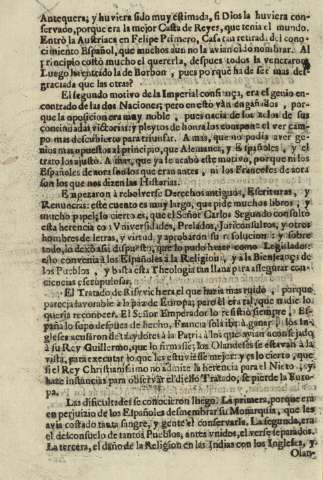 Antequera; y huviera sido muy estimada, si Dios la huviera con-
servado, porque era la mejor Casta de Reyes, que tenia el mundo.
Entrò la Austriaca en Felipe Primero, Casa tan retirad. del cono-
cimiento Español, que muchos aun no la avian oìdo nombrar. Al
principio costò mucho el quererla, despues todos la veneraron.
Luego ha entrado la de Borbon, pues porquè ha de ser mas des-
graciada que las otras?
El segundo motivo de la Imperial confiança, era el genio en-
contrado de las dos Naciones; pero en esto van engañados, por-
que la oposicion era muy noble, pues nacia de los zelos de sus
continuadas victorias; y pleytos de honra los compone el ver cam-
po mas descubierto para triunfar. A mas, que no podia aver ge-
nios mas opuestos al principio, que Alemanes, y Españoles, y el
trato los ajustò. A mas, que ya se acabò este motivo, porque ni los
Españoles de aora son los que eran antes, ni los Franceses de aora
son los que nos dizen las Historias.
Empezaron à rebolverse Derechos antiguos, Escrituras, y
Renuncias: este cuento es muy largo, que pide muchos libros, y
mucho papel; lo cierto es, que el Señor Carlos Segundo consultò
esta herencia con Vniversidades, Prelados, Jurisconsultos, y otros
hombres de letras, y virtud, y aprobaron su resolucion: y sobre
todo, lo dexò assi dispuesto, que lo pudo hazer como Legislador:
esto convenia à los Españoles à la Religion, y à la Bienança de
los Pueblos, y basta esta Theologia tan llana para assegurar con-
ciencias escrupulosas.
El Tratado de Risvvich era el que hazia mas ruido, porque
parecia favorable à la paz de Europa; pero èl era tal, que nadie lo
queria reconocer. El Señor Emperador lo resistiò siempre, Es-
paña lo supo despues de hecho, Francia sola iba à ganar; los In-
gleses acusaron de traydores à la Patria à los que avian aconsejado
à su Rey Guillermo, que lo firmasse; los Olandeses se estavan à la
vista, para executar lo que les estuviesse mejor: y es lo cierto, que
si el Rey Christianissimo no admite la herencia para el Nieto, y
haze instancias para observar el dicho Tratado, se pierde la Euro-
pa.
Las dificultades se conocieron luego. La primera, porque era
en perjuizio de los Españoles desmembrar su Monarquia, que les
avia costado tanta sangre, y gente el conservarla. La segunda, era
el desconsuelo de tantos Pueblos, antes unidos, el verse separados.
La tercera, el daño de la Religion en las Indias con los Ingleses, y
Olan-